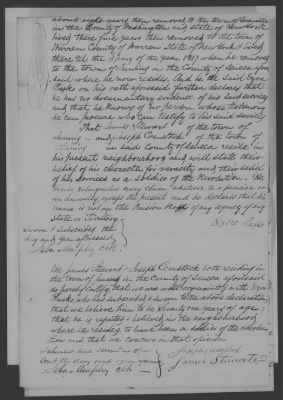 about eight years then removed to the town of
in the County of Washington and state of New York
lived there five years then removed to the town of
Warren County of Warren State of New York & lived
there till the Spring of the year 1817 when he removed
to the town of in the County of Seneca afore
said where he now resides. And he the said
on his oath aforesaid further declares that
he has no documentary evidence of his said services
and that he knows of no person whose testimony
he can procure who can testify to his said services
That James Stewart of the town of
and Joseph Comstock of the town of
in said county of Seneca reside in
his present neighbourhood and will state their
belief of his character for veracity and their belief
of his services as a soldier of the Revolution. He
hereby relinquishes every claim whatever to a pension or
an annuity except the present and he declares that his
name is not on the Pension Roll of any agency of any
State or Territory
Sworn & Subscribed the
day and year aforesaid
Clk
We James Stewart & Joseph Comstock both residing in
the town of in the County of Seneca aforesaid
do hereby certify that we are well acquainted with
who has subscribed & sworn to the above declaration
that we believe him to be seventy one years of age
that he is reputed & believed in the neighborhood
where he resides to have been a soldier of the revolu
tion and that we concur in that opinion
Subscribed and sworn to
the day and year
Clk
Joseph Comstock
James Stewart